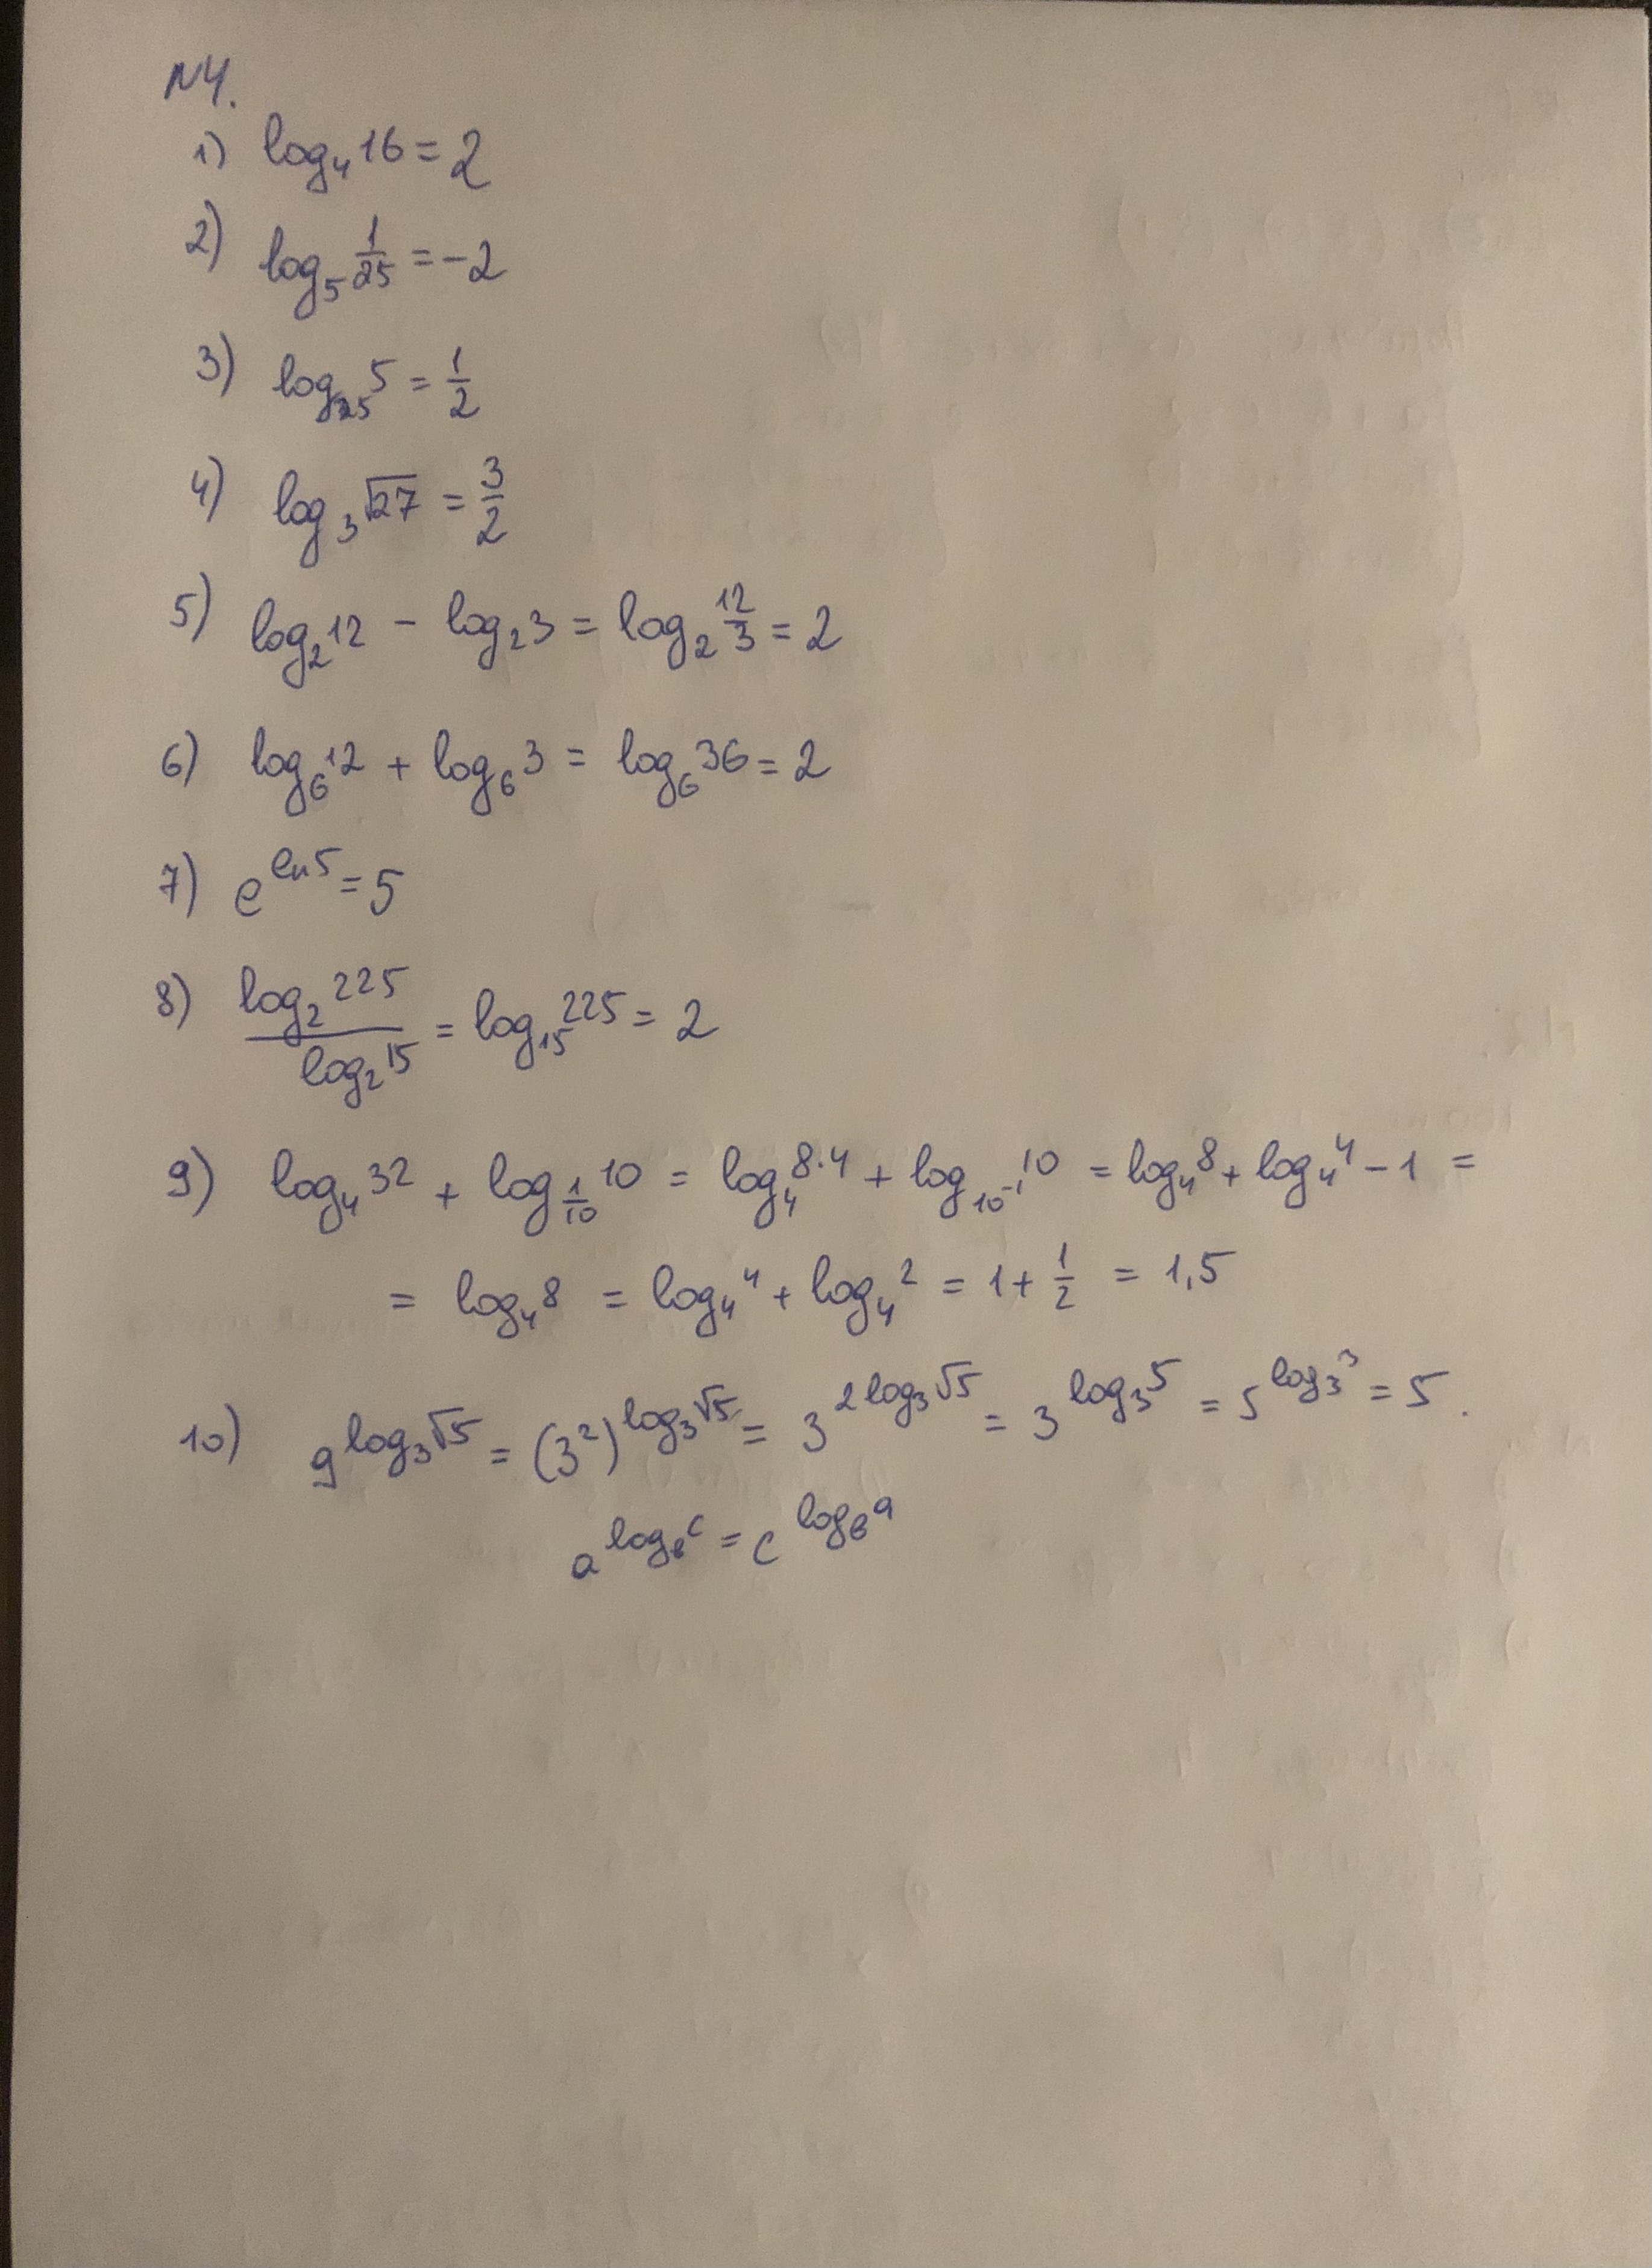 N4.
1) log₄16 = 2
2) log₅ 1/25 = -2
3) log₂₅5 = 1/2
4) log₃√27 = 3/2
5) log₂12 - log₂3 = log₂ 12/3 = 2
6) log₆12 + log₆3 = log₆36 = 2
7) e^(ln5) = 5
8) log₂225 / log₂15 = log₁₅225 = 2
9) log₄32 + log_(1/10) 10 = log₄8·4 + log_(10⁻¹) 10 = log₄8 + log₄4 - 1 =
= log₄8 = log₄4 + log₄2 = 1 + 1/2 = 1,5
10) 9^(log₃√5) = (3²)^(log₃√5) = 3^(2log₃√5) = 3^(log₃5) = 5^(log₃3) = 5.
a^(log_b c) = c^(log_b a)